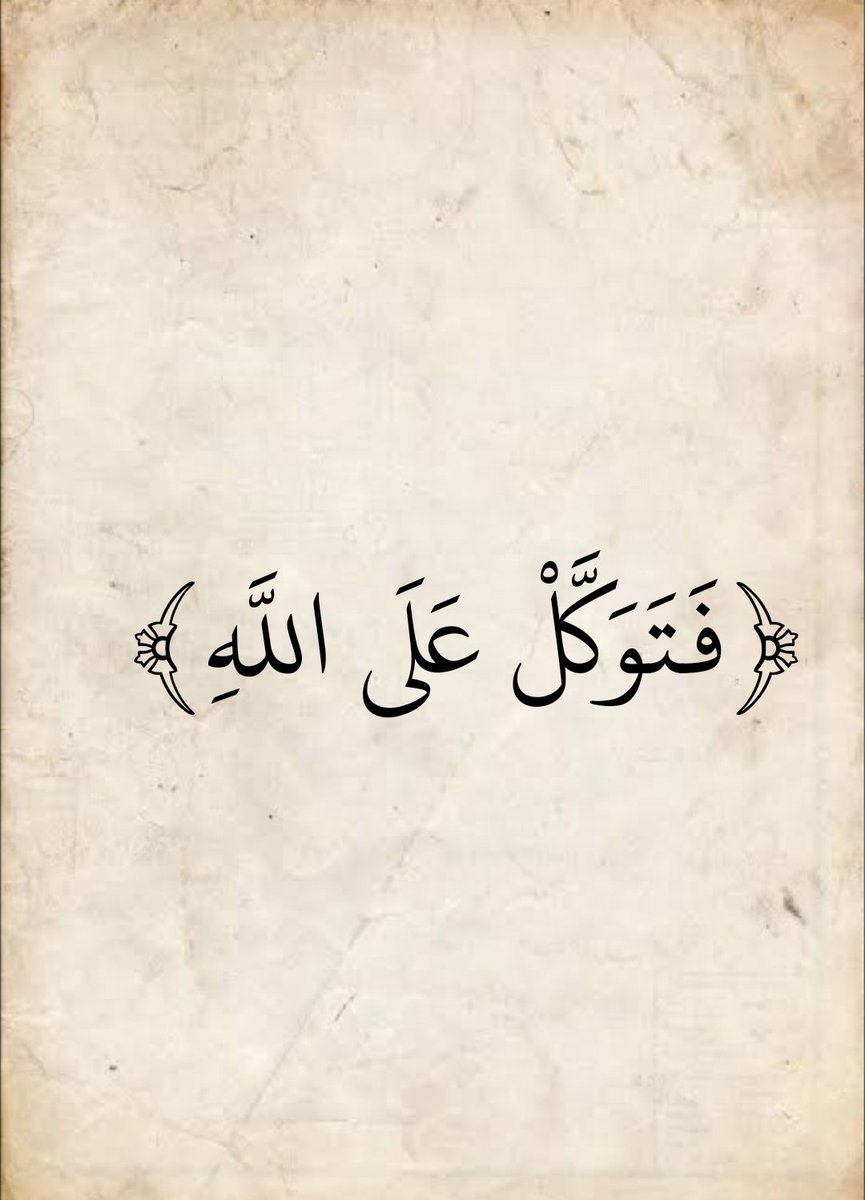 ﴿فَتَوَكَّلْ عَلَى اللَّهِ﴾